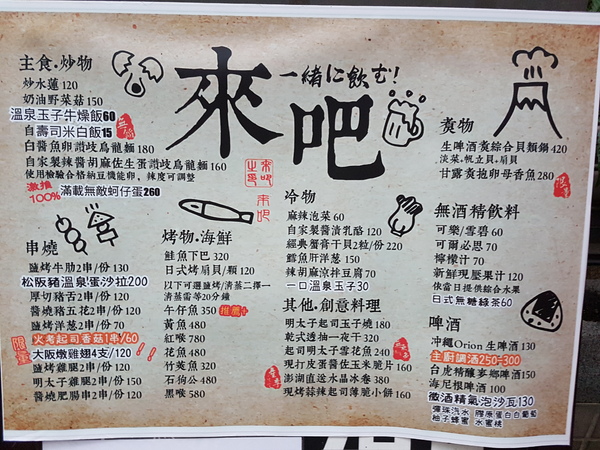 來吧
一緒に飲む!
主食.炒物
炒水蓮 120
奶油野菜菇 150
溫泉玉子牛燥飯60
自壽司米白飯15
白醬魚卵讚岐烏龍麵 180
自家製辣醬胡麻佐生蛋讚岐烏龍麵 160
使用檢驗合格納豆機能卵，辣度可調整
激推
100%
滿載無敵蚵仔蛋260
串燒
鹽烤牛肋2串/份 130
松阪豬溫泉蛋沙拉200
厚切豬舌2串/份 120
醬燒豬五花2串/份 120
鹽烤洋蔥2串/份 70
限量
火考起司香菇1串/60
大阪燉雞翅4支/120
鹽烤雞腿2串/份 120
明太子雞腿2串/份 150
醬燒肥腸串2串/份 120
烤物.海鮮
鮭魚下巴 320
日式烤扇貝/顆 120
以下可選鹽烤/清蒸二擇一
清蒸需等20分鐘
午仔魚 350
推薦
黃魚 480
紅喉 780
花魚 480
竹莢魚 320
石狗公 480
黑喉 580
冷物
麻辣泡菜 60
自家製醬漬乳酪 120
經典蟹膏干貝2粒/份 220
鱈魚肝洋蔥 150
辣胡麻涼拌豆腐 70
一口溫泉玉子30
其他.創意料理
明太子起司玉子燒 180
乾式透抽一夜干 320
起司明太子雪花腐 240
現打皮蛋醬佐玉米脆片 160
澎湖直送水晶冰卷 380
現烤蒜辣起司薄脆小餅 160
煑物
生啤酒煑綜合貝類鍋 420
淡菜.帆立貝.扇貝
甘露煑抱卵母香魚 280
無酒精飲料
可樂/雪碧 60
可爾必思 70
檸檬汁 70
新鮮現壓果汁 120
依當日提供綜合水果
日式無糖綠茶60
啤酒
沖繩Orion 生啤酒 130
主廚調酒250-300
台虎精釀爹娜啤酒150
海尼根啤酒 100
微酒精氣泡沙瓦130
彈珠汽水 膠原蛋白白葡萄
柚子蜂蜜 水蜜桃